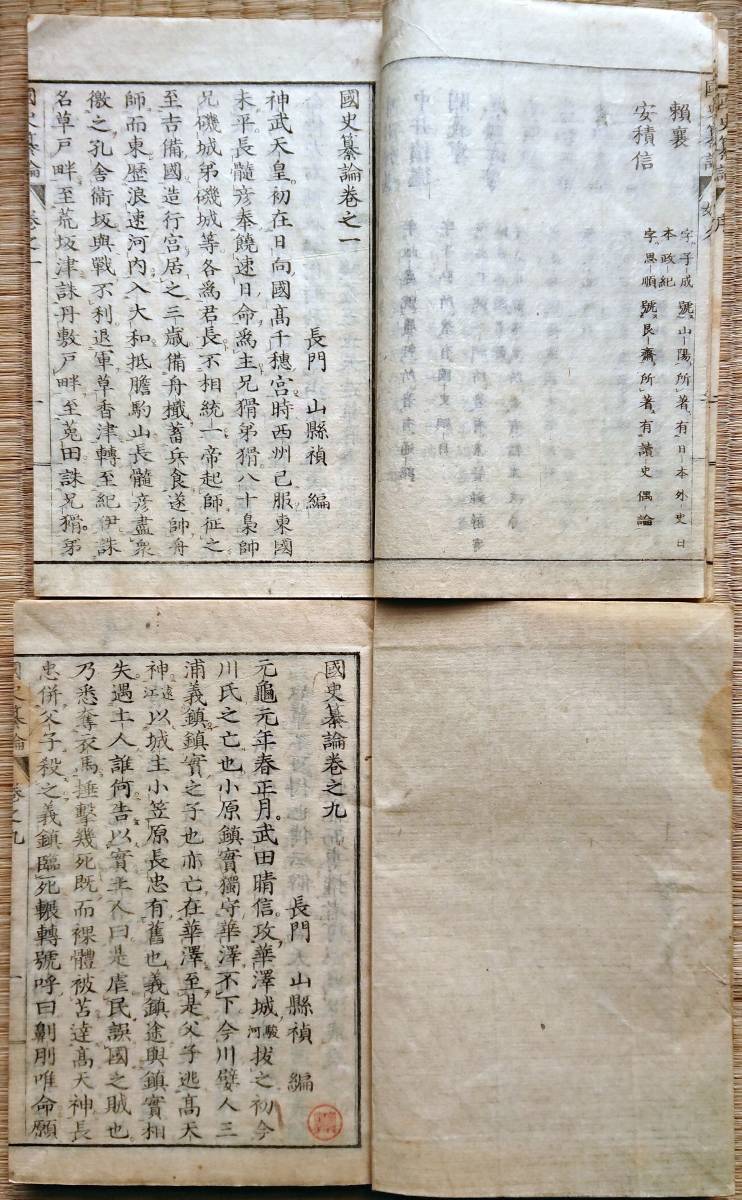 賴襄 字子成號山陽所著有日本外史日
本政紀
安積信 字思順號艮齋所著有讀史偶論
國史纂論卷之一
長門 山縣禎 編
神武天皇初在日向國高千穗宮時西州已服東國
未平長髓彦奉饒速日命爲主兄猾弟猾八十梟帥
兄磯城弟磯城等各爲君長不相統一帝起師征之
至吉備國造行宮居之三歲備舟檝蓄兵食遂帥舟
師而東歷浪速河内入大和抵膽駒山長髓彦盡衆
徼之孔舎衞坂與戰不利退軍草香津轉至紀伊誅
名草戸畔至荒坂津誅丹敷戸畔至菟田誅兄猾弟
國史纂論 卷之一
國史纂論卷之九
長門 山縣禎 編
元龜元年春正月武田晴信攻華澤城駿河拔之初今
川氏之亡也小原鎮實獨守華澤不下今川嬖人三
浦義鎮鎮實之子也亦亡在華澤至是父子逃高天
神遠江以城主小笠原長忠有舊也義鎮途與鎮實相
失遇土人誰何告以實土人曰是虐民誤國之賊也
乃悉奪衣馬捶擊幾死既而裸體被苫達高天神長
忠併父子殺之義鎮臨死輾轉號呼曰劓刖唯命願
國史纂論 卷之九